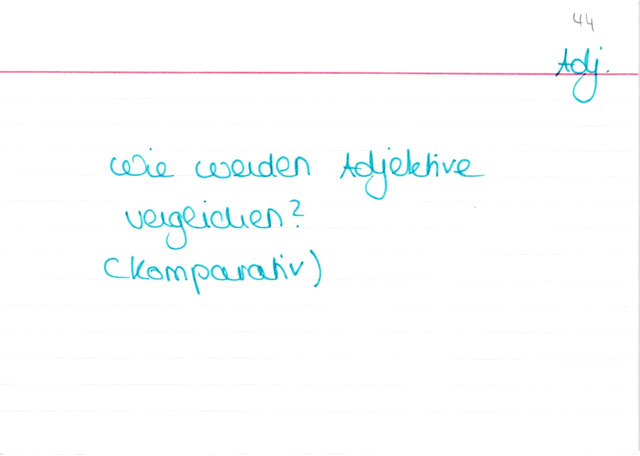 44
Adj.
Wie werden Adjektive
verglichen?
(Komparativ)